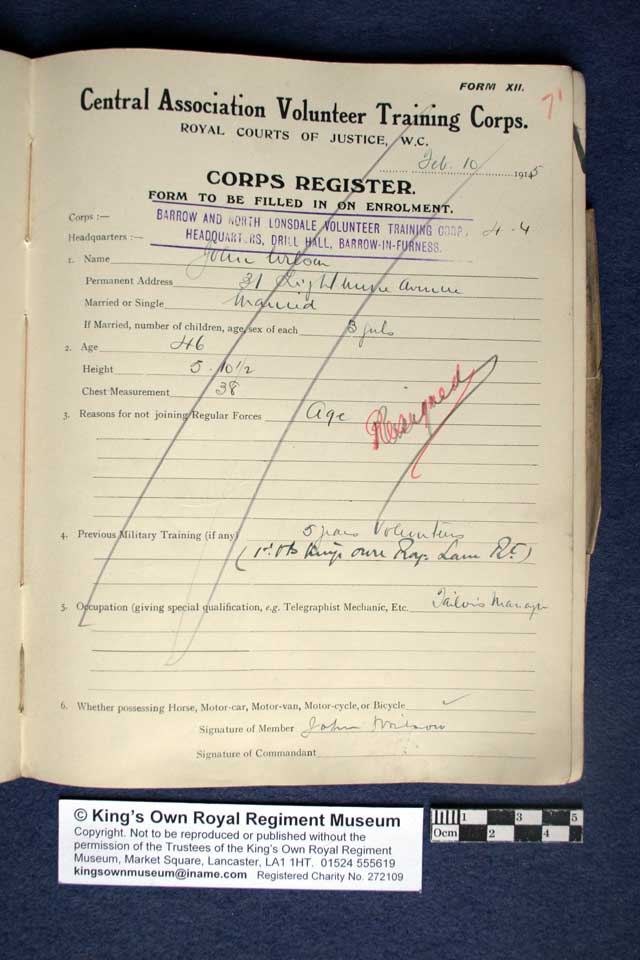 FORM XII.
71
Central Association Volunteer Training Corps.
ROYAL COURTS OF JUSTICE, W.C.
Feb. 10 1915
CORPS REGISTER.
FORM TO BE FILLED IN ON ENROLMENT.
Corps :— BARROW AND NORTH LONSDALE VOLUNTEER TRAINING CORPS 4-4
Headquarters :— HEADQUARTERS, DRILL HALL, BARROW-IN-FURNESS.
1. Name John Wilson
Permanent Address 31 Avenue
Married or Single Married
If Married, number of children, age, sex of each 3 girls
2. Age 46
Height 5 - 10 1/2
Chest Measurement 38
3. Reasons for not joining Regular Forces Age
Resigned
4. Previous Military Training (if any) 5 years Volunteers
(1st VB Kings Own Roy. Lanc Rt.)
5. Occupation (giving special qualification, e.g. Telegraphist Mechanic, Etc. Tailor's Manager
6. Whether possessing Horse, Motor-car, Motor-van, Motor-cycle, or Bicycle ✓
Signature of Member John Wilson
Signature of Commandant
© King's Own Royal Regiment Museum
Copyright. Not to be reproduced or published without the
permission of the Trustees of the King's Own Royal Regiment
Museum, Market Square, Lancaster, LA1 1HT. 01524 555619
kingsownmuseum@iname.com Registered Charity No. 272109
1 3 5
0cm 2 4